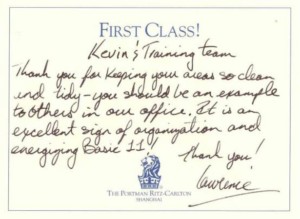 FIRST CLASS!
Kevin's Training team
Thank you for keeping your areas so clean
and tidy - you should be an example
to others in our office. It is an
excellent sign of organization and
energizing Basic 11!
Thank you!
Lawrence
THE PORTMAN RITZ-CARLTON
SHANGHAI